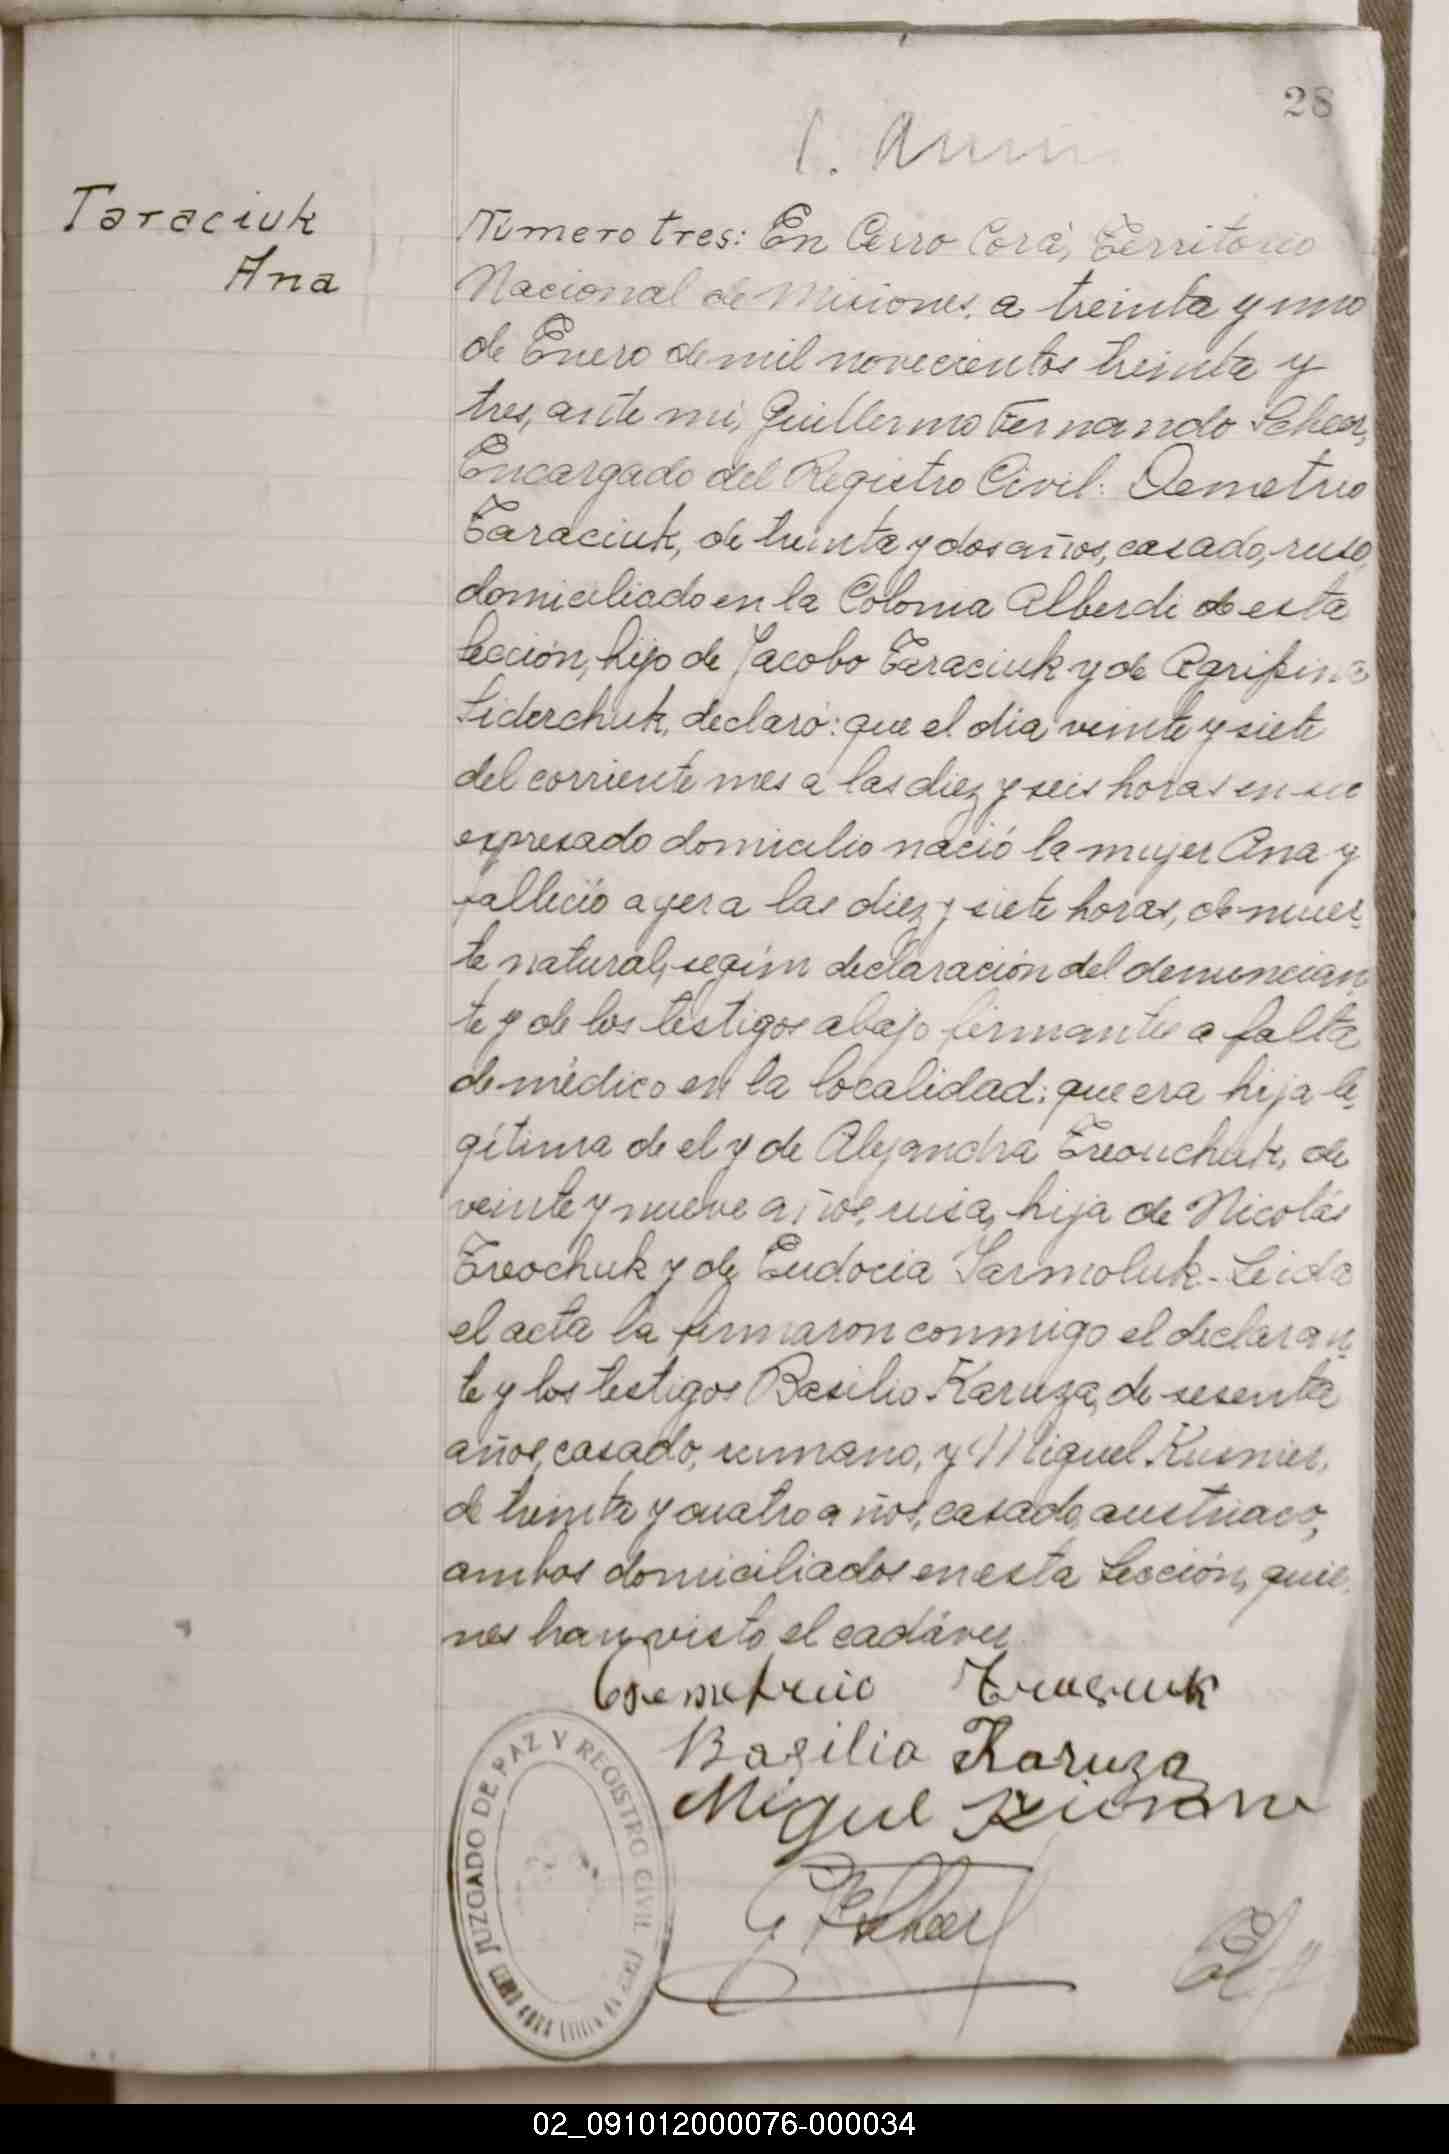 28
Taraciuk
Ana
Número tres: En Cerro Corá, Territorio
Nacional de Misiones, a treinta y uno
de Enero de mil novecientos treinta y
tres, ante mi, Guillermo Fernando Scheer,
Encargado del Registro Civil: Demetrio
Taraciuk, de treinta y dos años, casado, ruso,
domiciliado en la Colonia Alberdi de esta
Sección, hijo de Jacobo Taraciuk y de Agripina
Siderchuk, declaró: que el dia veinte y siete
del corriente mes a las diez y seis horas en su
expresado domicilio nació la mujer Ana y
falleció ayer a las diez y siete horas, de muer-
te natural, según declaración del denuncian-
te y de los testigos abajo firmantes a falta
de médico en la localidad; que era hija le-
gitima de el y de Alejandra Treouchuk, de
veinte y nueve años, rusa, hija de Nicolás
Treochuk y de Eudocia Sarmoluk - Leida
el acta la firmaron conmigo el declaran-
te y los testigos Basilio Karuza, de sesenta
años, casado, rumano, y Miguel Kusnier,
de treinta y cuatro años, casado, austriaco,
ambos domiciliados en esta Sección, quie-
nes han visto el cadáver
Basilio Karuza
Miguel
G F Scheer
JUZGADO DE PAZ Y REGISTRO CIVIL
02_091012000076-000034